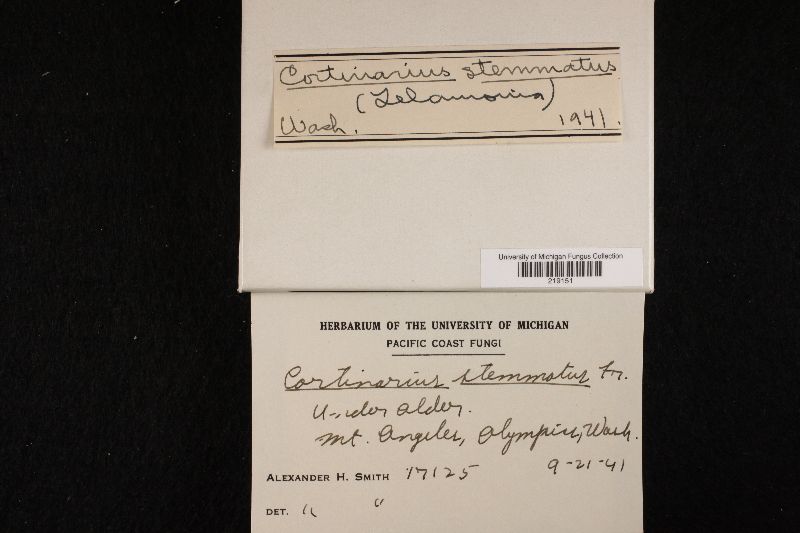 Cortinarius stemmatus
(Telamonia)
Wash. 1941.
University of Michigan Fungus Collection
219151
HERBARIUM OF THE UNIVERSITY OF MICHIGAN
PACIFIC COAST FUNGI
Cortinarius stemmatus Fr.
Under alder.
Mt. Angeles, Olympics, Wash.
ALEXANDER H. SMITH 17125 9-21-41
DET. " "